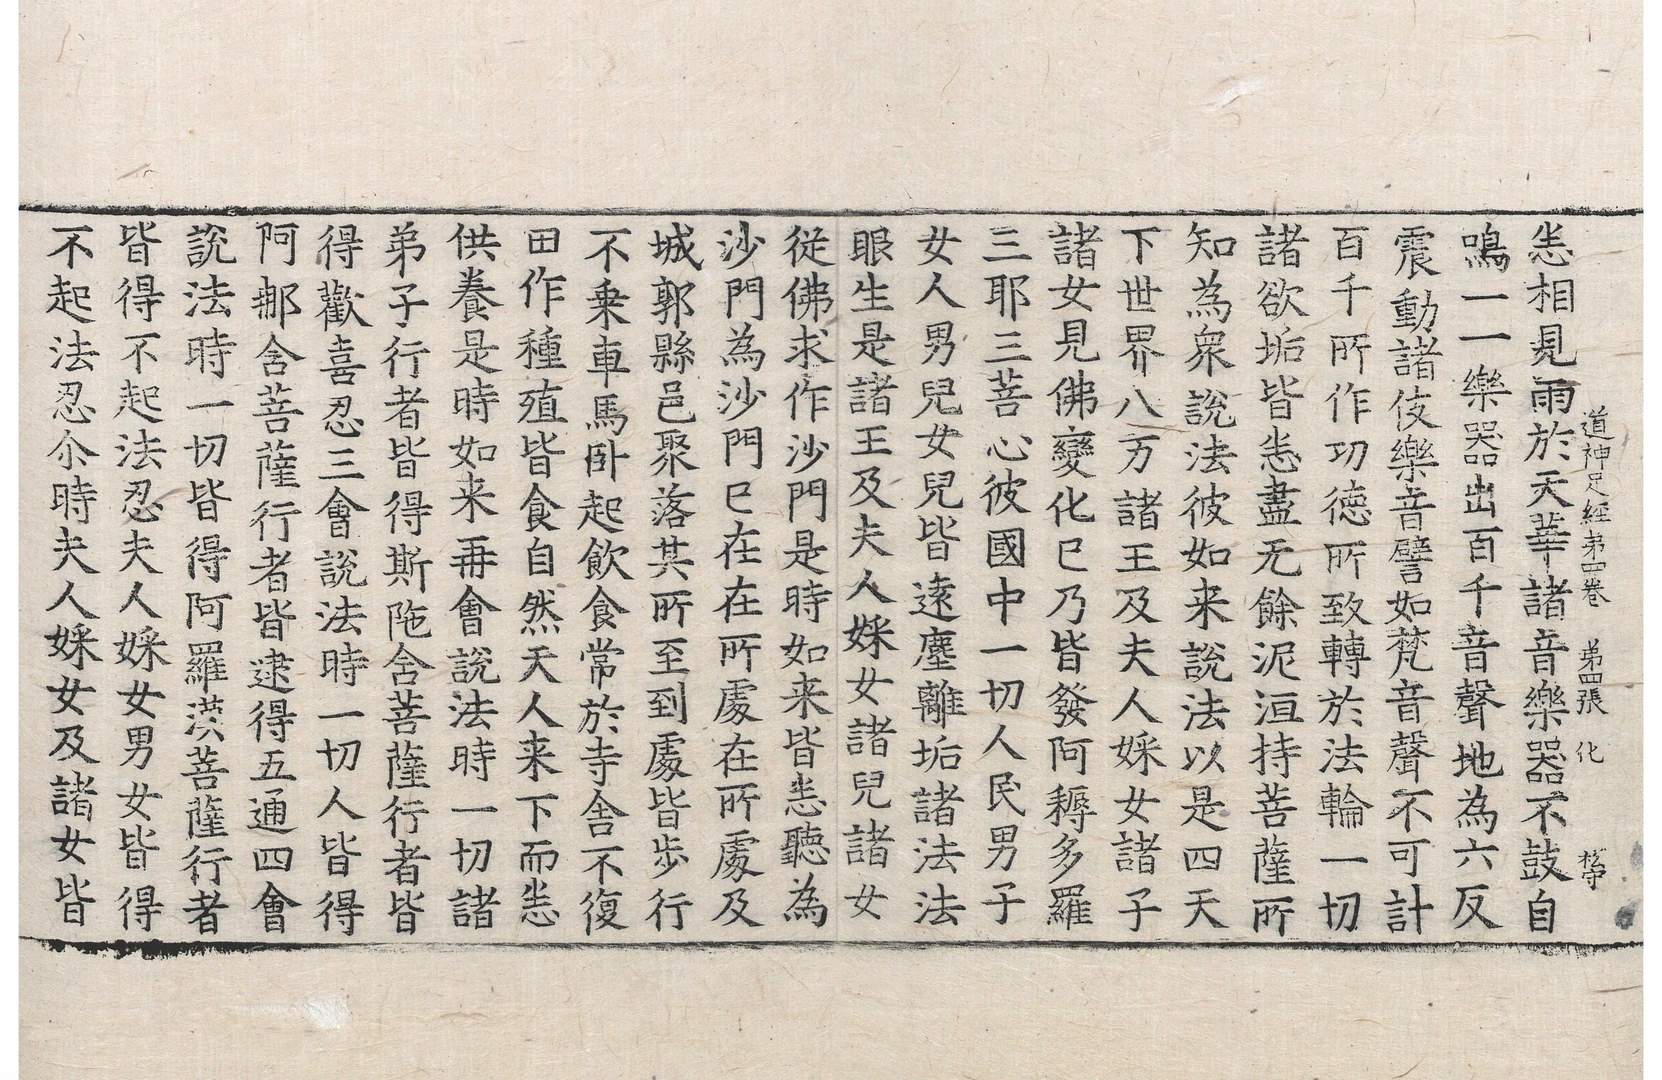 道神足經第四卷 第四張 化
恙相見雨於天華諸音樂器不鼓自
鳴一一樂器出百千音聲地為六反
震動諸伎樂音譬如梵音聲不可計
百千所作功德所致轉於法輪一切
諸欲垢皆恙盡无餘泥洹持菩薩所
知為衆說法彼如来說法以是四天
下世界八万諸王及夫人婇女諸子
諸女見佛變化已乃皆發阿耨多羅
三耶三菩心彼國中一切人民男子
女人男兒女兒皆遠塵離垢諸法法
眼生是諸王及夫人婇女諸兒諸女
從佛求作沙門是時如来皆恙聽為
沙門為沙門已在在所處在所處及
城郭縣邑聚落其所至到處皆步行
不乗車馬卧起飲食常於寺舍不復
田作種殖皆食自然天人来下而恙
供養是時如来再會說法時一切諸
弟子行者皆得斯陁含菩薩行者皆
得歡喜忍三會說法時一切人皆得
阿郍含菩薩行者皆逮得五通四會
說法時一切皆得阿羅漢菩薩行者
皆得不起法忍夫人婇女男女皆得
不起法忍尒時夫人婇女及諸女皆